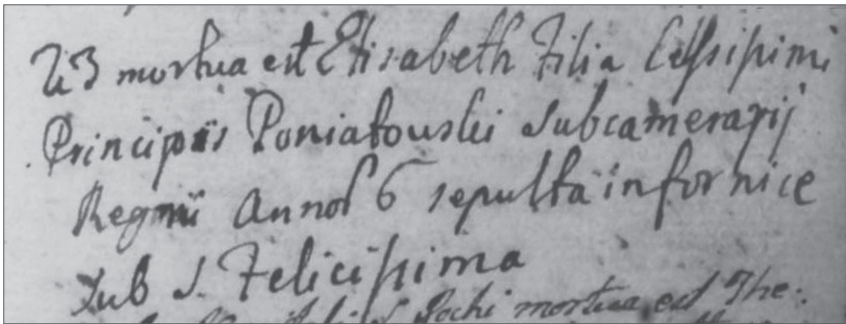 23 mortua est Elisabeth Filia Celsissimi
Principis Poniatouski Subcamerarij
Regni Annor 6 sepulta in fornice
Sub S. Felicissima
Rochi mortua est The: